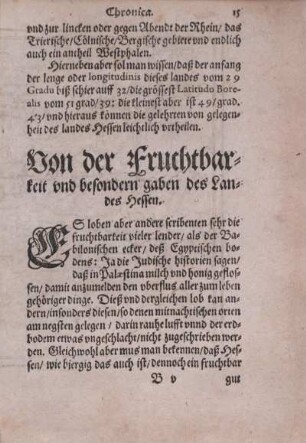 Chronica. 15
vnd zur lincken oder gegen Abendt der Rhein/ das
Trierische/Cölnische/Bergische gebiete vnd endlich
auch ein antheil Westphalen.
Hierneben aber sol man wissen/ daß der anfang
der lenge oder longitudinis dieses landes vom 29
Gradu biß schier auff 32/ die grössest Latitudo Bore-
alis vom 51 grad/39: die kleinest aber ist 49/ grad.
43/ vnd hieraus können die gelehrten von gelegen-
heit des landes Hessen leichtlich vrtheilen.
Von der Fruchtbar-
keit vnd besondern gaben des Lan-
des Hessen.
ES loben aber andere scribenten sehr die
fruchtbarkeit vieler lender/ als der Ba-
bilonischen ecker/ deß Egyptischen bo-
dens: Ja die Judische historien sagen/
daß in Palæstina milch vnd honig geflos-
sen/ damit anzumelden den vberflus aller zum leben
gehöriger dinge. Dieß vnd dergleichen lob kan an-
dern/ insonders diesen/ so denen mitnachtischen orten
am negsten gelegen/ darin rauhe lufft vnnd der erd-
bodem etwas vngeschlacht/ nicht zugeschrieben wer-
den. Gleichwohl aber mus man bekennen/ daß Hes-
sen/ wie biergig das auch ist/ dennoch ein fruchtbar
B v gut